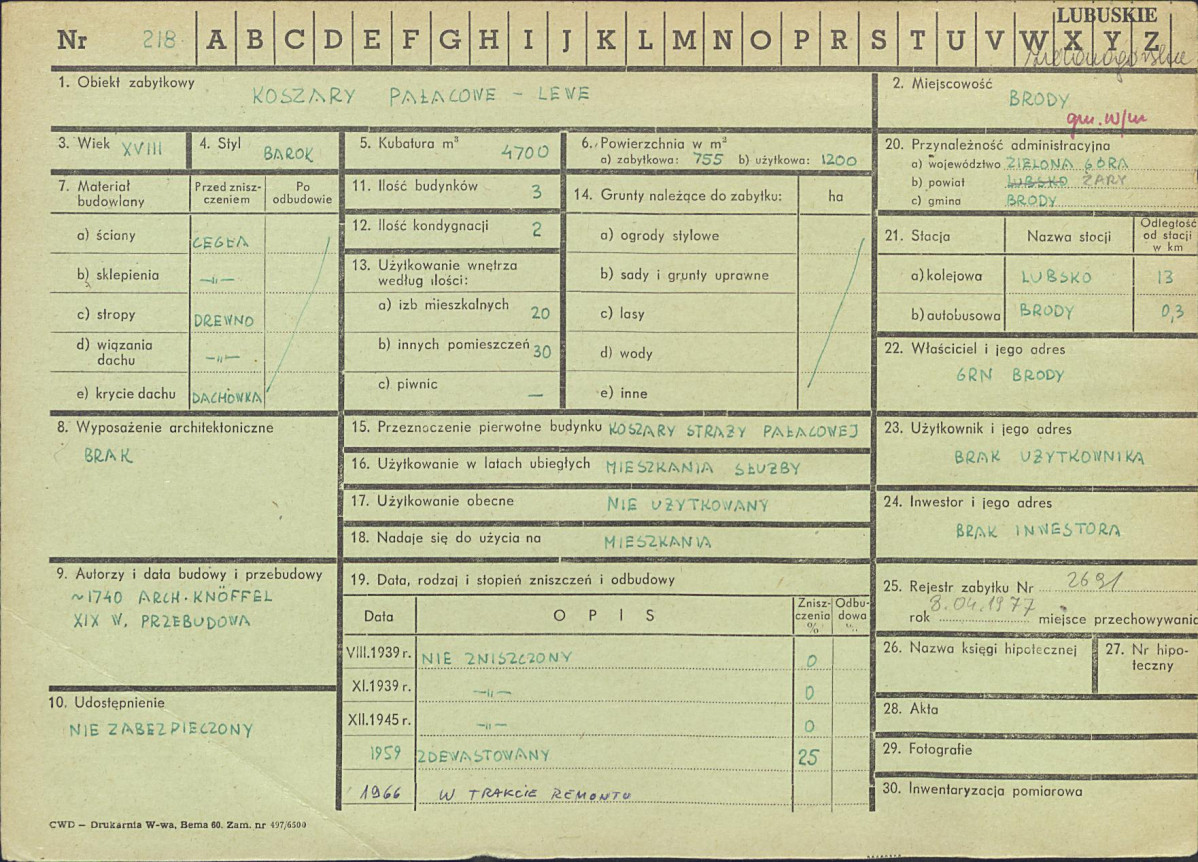 LUBUSKIE
Nr 218 A B C D E F G H I J K L M N O P R S T U V W X Y Z
zielonogórskie
1. Obiekt zabytkowy
KOSZARY PAŁACOWE - LEWE
2. Miejscowość
BRODY
gm. w/m
3. Wiek XVIII
4. Styl BAROK
5. Kubatura m³ 4700
6. Powierzchnia w m²
a) zabytkowa: 755 b) użytkowa: 1200
7. Materiał budowlany
Przed zniszczeniem
Po odbudowie
a) ściany CEGŁA
b) sklepienia —„—
c) stropy DREWNO
d) wiązania dachu —„—
e) krycie dachu DACHÓWKA
8. Wyposażenie architektoniczne
BRAK
9. Autorzy i data budowy i przebudowy
~1740 ARCH. KNÖFFEL
XIX W. PRZEBUDOWA
10. Udostępnienie
NIE ZABEZPIECZONY
11. Ilość budynków 3
12. Ilość kondygnacji 2
13. Użytkowanie wnętrza
według ilości:
a) izb mieszkalnych 20
b) innych pomieszczeń 30
c) piwnic —
14. Grunty należące do zabytku: ha
a) ogrody stylowe
b) sady i grunty uprawne
c) lasy
d) wody
e) inne
15. Przeznaczenie pierwotne budynku KOSZARY STRAŻY PAŁACOWEJ
16. Użytkowanie w latach ubiegłych MIESZKANIA SŁUŻBY
17. Użytkowanie obecne NIE UŻYTKOWANY
18. Nadaje się do użycia na MIESZKANIA
19. Data, rodzaj i stopień zniszczeń i odbudowy
Data OPIS Zniszczenia % Odbudowa %
VIII.1939 r. NIE ZNISZCZONY 0
XI.1939 r. —„— 0
XII.1945 r. —„— 0
1959 ZDEWASTOWANY 25
1966 W TRAKCIE REMONTU
20. Przynależność administracyjna
a) województwo ZIELONA GÓRA
b) powiat LUBSKO ŻARY
c) gmina BRODY
21. Stacja Nazwa stacji Odległość od stacji w km
a) kolejowa LUBSKO 13
b) autobusowa BRODY 0,3
22. Właściciel i jego adres
GRN BRODY
23. Użytkownik i jego adres
BRAK UŻYTKOWNIKA
24. Inwestor i jego adres
BRAK INWESTORA
25. Rejestr zabytku Nr 2691
rok 8.04.1977 miejsce przechowywania
26. Nazwa księgi hipotecznej
27. Nr hipoteczny
28. Akta
29. Fotografie
30. Inwentaryzacja pomiarowa
CWD — Drukarnia W-wa, Bema 60. Zam. nr 497/6500